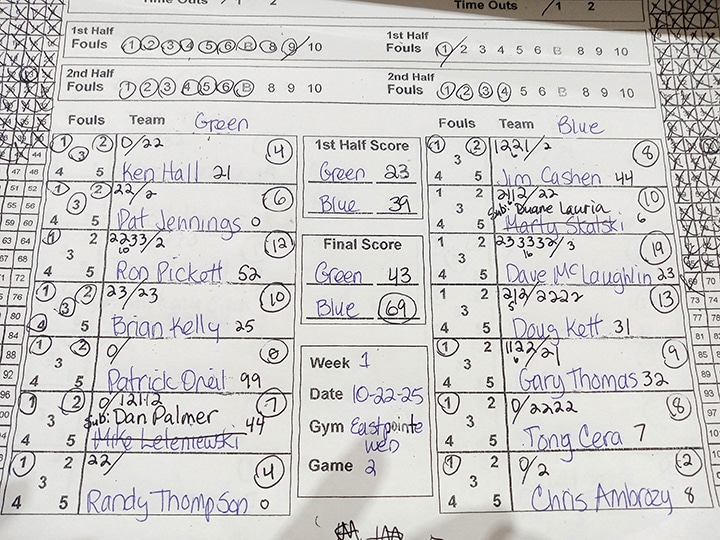 Time Outs / 1 2
Time Outs / 1 2
1st Half
Fouls 1 2 3 4 5 6 B 8 9 10
1st Half
Fouls 1 2 3 4 5 6 B 8 9 10
2nd Half
Fouls 1 2 3 4 5 6 B 8 9 10
2nd Half
Fouls 1 2 3 4 5 6 B 8 9 10
Fouls Team Green
1 2 0/22 4
3
4 5 Ken Hall 21
1 2 22/2 6
3
4 5 Pat Jennings 0
1 2 2233/2 12
3 10
4 5 Ron Pickett 52
1 2 23/23 10
3
4 5 Brian Kelly 25
1 2 0/ 0
3
4 5 Patrick Oneil 99
1 2 0/12112 7
3 Sub: Dan Palmer 44
4 5 Mike Leleniewski
1 2 22/ 4
3
4 5 Randy Thompson 0
1st Half Score
Green 23
Blue 39
Final Score
Green 43
Blue 69
Week 1
Date 10-22-25
Gym Eastpointe
Wed
Game 2
Fouls Team Blue
1 2 1221/2 8
3
4 5 Jim Cashen 44
1 2 212/22 10
3 Sub: Duane Lauria
4 5 Marty Skalski 6
1 2 233332/3 19
3 16
4 5 Dave McLaughlin 23
1 2 212/2222 13
3 5
4 5 Doug Kett 31
1 2 1122/21 9
3 6
4 5 Gary Thomas 32
1 2 0/2222 8
3
4 5 Tong Cera 7
1 2 0/2 2
3
4 5 Chris Ambrozy 8